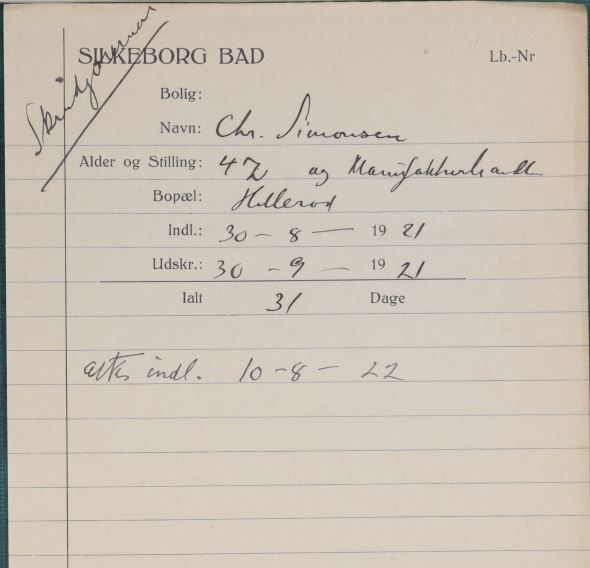 SILKEBORG BAD
Lb.-Nr
Bolig:
Navn: Chr. Simonsen
Alder og Stilling: 47 og Manufakturhandl
Bopæl: Hillerød
Indl.: 30 - 8 - 19 21
Udskr.: 30 - 9 - 19 21
Ialt 31 Dage
atter indl. 10 - 8 - 22